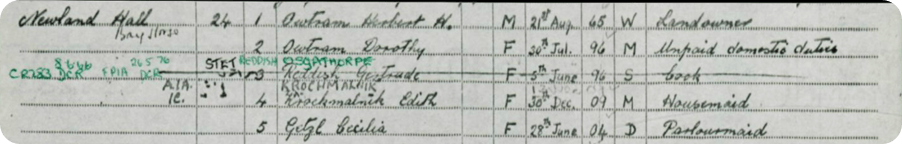 Newland Hall 24 1 Owtram Herbert H. M 21st Aug. 65 W Landowner
Bay Horse
2 Owtram Dorothy F 20th Jul. 96 M Unpaid domestic duties
8666 26576 STET REDDISH OSGATHORPE
CR283 DCR EPIA DCR 3 Reddish Gertrude F 5th June 96 S Cook
A.I.A. KROCHMALNIK
4 Krochmalnik Edith F 30th Dec. 09 M Housemaid
5 Getzl Cecilia F 28th June 04 D Parlourmaid